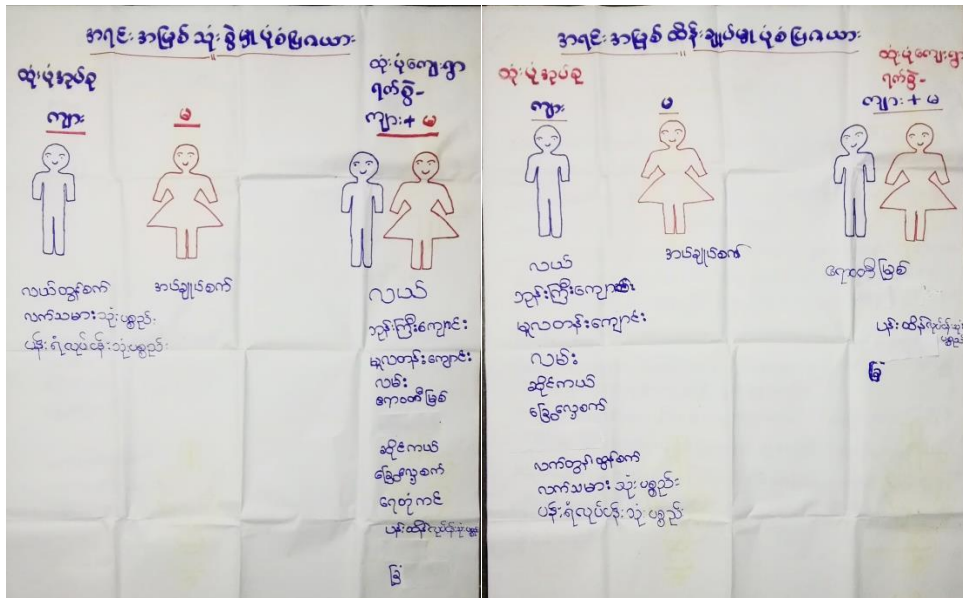 အရင်းအမြစ် သုံးစွဲမှု ပုံစံပြဇယား
ထုံးပုံအုပ်စု
ကျား
မ
ထုံးပုံကျေးရွာ
ရက်စွဲ-
ကျား + မ
လယ်ထွန်စက်
လက်သမားသုံးပစ္စည်း
ပန်းရံလုပ်ငန်းသုံးပစ္စည်း
အပ်ချုပ်စက်
လယ်
ဘုန်းကြီးကျောင်း
မူလတန်းကျောင်း
လမ်း
ဧရာဝတီမြစ်
ဆိုင်ကယ်
ခြွေလှေ့စက်
ရေတုံကင်
ပန်းထိန်လုပ်ငန်းသုံးပစ္စည်း
ခြံ
အရင်းအမြစ် ထိန်းချုပ်မှု ပုံစံပြဇယား
ထုံးပုံအုပ်စု
ကျား
မ
ထုံးပုံကျေးရွာ
ရက်စွဲ-
ကျား + မ
လယ်
ဘုန်းကြီးကျောင်း
မူလတန်းကျောင်း
လမ်း
ဆိုင်ကယ်
ခြွေလှေ့စက်
လက်တွန်းထွန်စက်
လက်သမားသုံးပစ္စည်း
ပန်းရံလုပ်ငန်းသုံးပစ္စည်း
အပ်ချုပ်စက်
ဧရာဝတီမြစ်
ပန်းထိန်လုပ်ငန်းသုံး
ပစ္စည်း
ခြံ